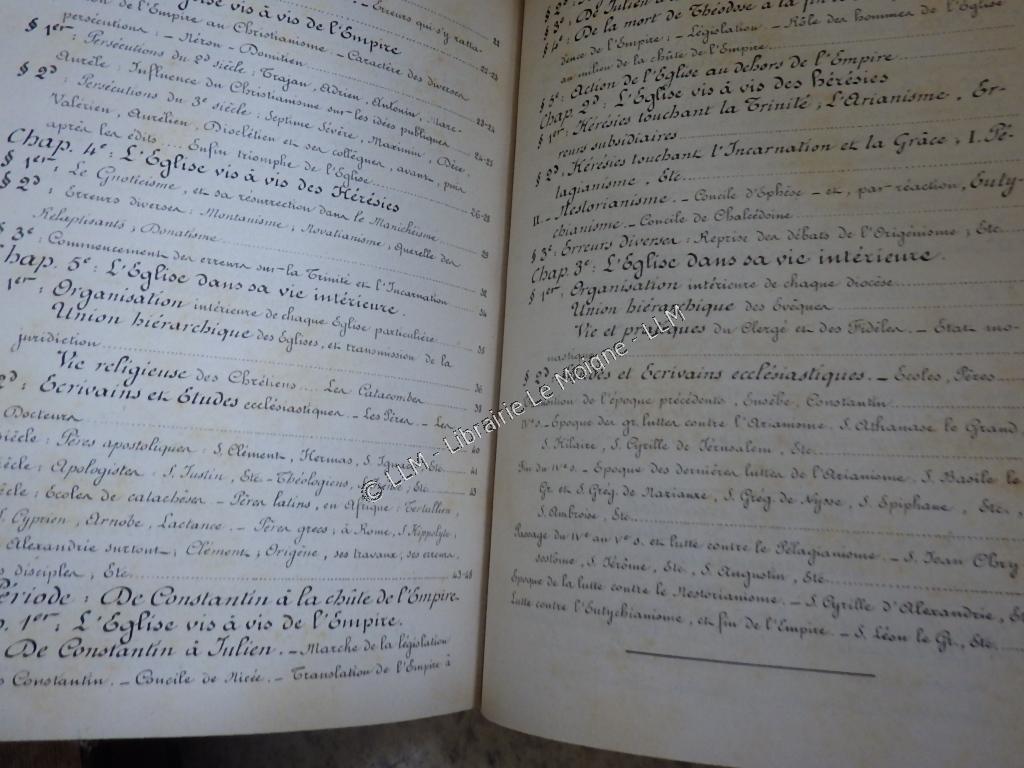 Erreurs qui s'y ratta-
l'Eglise vis à vis de l'Empire 21
de l'Empire au Christianisme - Caractère des diverses
persécutions: - Néron - Domitien 22-23
§ 1er: Persécutions du 2d siècle: Trajan, Adrien, Antonin, Marc-
Aurèle: Influence du Christianisme sur les idées publiques 23-24
§ 2d: Persécutions du 3e siècle: Septime Sévère, Maximin, Dèce,
Valérien, Aurélien, Dioclétien et ses collègues, avant, puis 24-25
après les édits... Enfin triomphe de l'Eglise
Chap. 4e: L'Eglise vis à vis des Hérésies 26-28
§ 1er: Le Gnoticisme, et sa résurrection dans le Manichéisme
§ 2d: Erreurs diverses: Montanisme, Novatianisme, Querelle des 29
Rebaptisants, Donatisme
§ 3e: Commencement des erreurs sur la Trinité et l'Incarnation
Chap. 5e: L'Eglise dans sa vie intérieure.
1er: Organisation intérieure de chaque Eglise particulière 34
Union hiérarchique des Eglises, et transmission de la 35
juridiction
Vie religieuse des Chrétiens... Les Catacombes 36
2d: Ecrivains et Etudes ecclésiastiques - Les Pères - Les
Docteurs
siècle: Pères apostoliques: S. Clément, Hermas, S. Ignace, Etc. 40
siècle: Apologistes: S. Justin, Etc. - Théologiens, Etc. 41
siècle: Ecoles de catachèses - Pères latins, en Afrique: Tertullien,
S. Cyprien, Arnobe, Lactance. - Pères grecs, à Rome, S. Hippolyte,
Alexandrie surtout, Clément, Origène, ses travaux, ses erreurs,
disciples, Etc. 43-48
Période: De Constantin à la chûte de l'Empire.
1er: L'Eglise vis à vis de l'Empire.
De Constantin à Julien. - Marche de la législation
Constantin. - Concile de Nicée. - Translation de l'Empire à
§ 3e: De Julien à
§ 4e: De la mort de Théodose à la fin
dence de l'Empire: - Législation - Rôle des hommes de l'Eglise
au milieu de la chûte de l'Empire
§ 5e: Action de l'Eglise au dehors de l'Empire
Chap. 2d: L'Eglise vis à vis des Hérésies
§ 1er: Hérésies touchant la Trinité, L'Arianisme, Er-
reurs subsidiaires
§ 2d: Hérésies touchant l'Incarnation et la Grâce, I. Pé-
lagianisme, Etc
II. - Nestorianisme. - Concile d'Ephèse - et, par réaction, Euty-
chianisme - Concile de Chalcédoine
§ 3e: Erreurs Diverses: Reprise des débats de l'Origénisme, Etc
Chap. 3e: L'Eglise dans sa vie intérieure.
§ 1er: Organisation intérieure de chaque diocèse
Union hiérarchique des Evêques
Vie et pratiques du Clergé et des Fidèles. - Etat mo-
nastique
§ 2d: Etudes et Ecrivains ecclésiastiques. - Ecoles, Pères
de l'époque précédente, Eusèbe, Constantin
IVe s. - Epoque des gr. luttes contre l'Arianisme. S. Athanase le Grand,
S. Hilaire, S. Cyrille de Jérusalem, Etc.
Fin du IVe s. - Epoque des dernières luttes de l'Arianisme. S. Basile le
Gr. et S. Grég. de Nazianze, S. Grég. de Nysse, S. Epiphane, Etc.,
S. Ambroise, Etc
Passage du IVe au Ve s. et lutte contre le Pélagianisme. - S. Jean Chry
sostôme, S. Jérôme, Etc, S. Augustin, Etc
Epoque de la lutte contre le Nestorianisme. - S. Cyrille d'Alexandrie, Etc
Lutte contre l'Eutychianisme, et fin de l'Empire. - S. Léon le Gr., Etc.
© LLM - Librairie Le Moigne - LLM